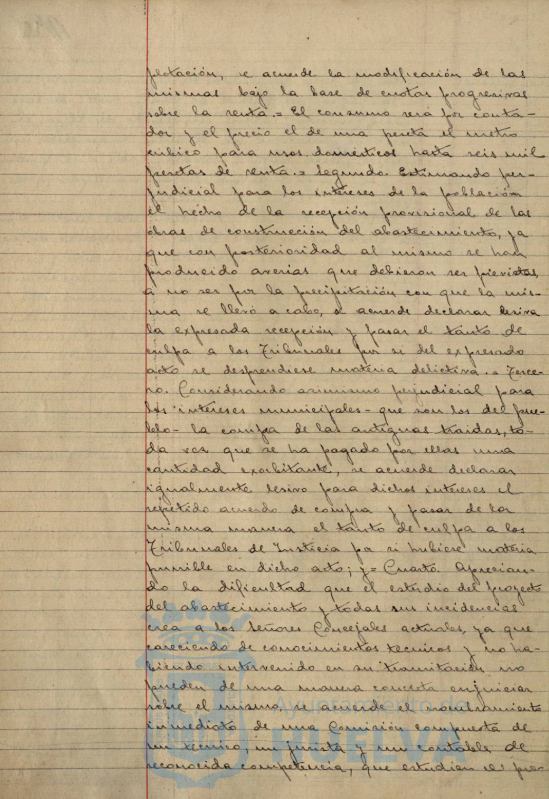 plotación, se acuerde la modificación de las
mismas bajo la base de cuotas progresivas
sobre la renta.= El consumo será por conta-
dor y el precio el de una peseta el metro
cúbico para usos domésticos hasta seis mil
pesetas de renta.= Segundo. Estimando per-
judicial para los intereses de la población
el hecho de la recepción provisional de las
obras de construcción del abastecimiento, ya
que con posterioridad al mismo se han
producido averias que debieron ser previstas,
a no ser por la precipitación con que la mis-
ma se llevó a cabo, se acuerde declarar lesiva
la expresada recepción y pasar el tánto de
culpa a los Tribunales por si del expresado
acto se desprendiese materia delictiva.= Terce-
ro. Considerando asimismo perjudicial para
los intereses municipales- que son los del pue-
blo- la compra de las antiguas traidas, to-
da vez que se ha pagado por ellas una
cantidad exorbitante, se acuerde declarar
igualmente lesivo para dichos intereses el
repetido acuerdo de compra y pasar de la
misma manera el tánto de culpa a los
Tribunales de Justicia por si hubiere materia
punible en dicho acto; y= Cuarto. Aprecian-
do la dificultad que el estudio del proyecto
del abastecimiento y todas sus incidencias
crea a los Señores Concejales actuales, ya que
careciendo de conocimientos tecnicos y no ha-
biendo intervenido en su tramitación no
pueden de una manera concreta enjuiciar
sobre el mismo, se acuerde el nombramiento
inmediato de una Comisión compuesta de
un tecnico, un jurista y un contable de
reconocida competencia, que estudien el pro-
HUELVA